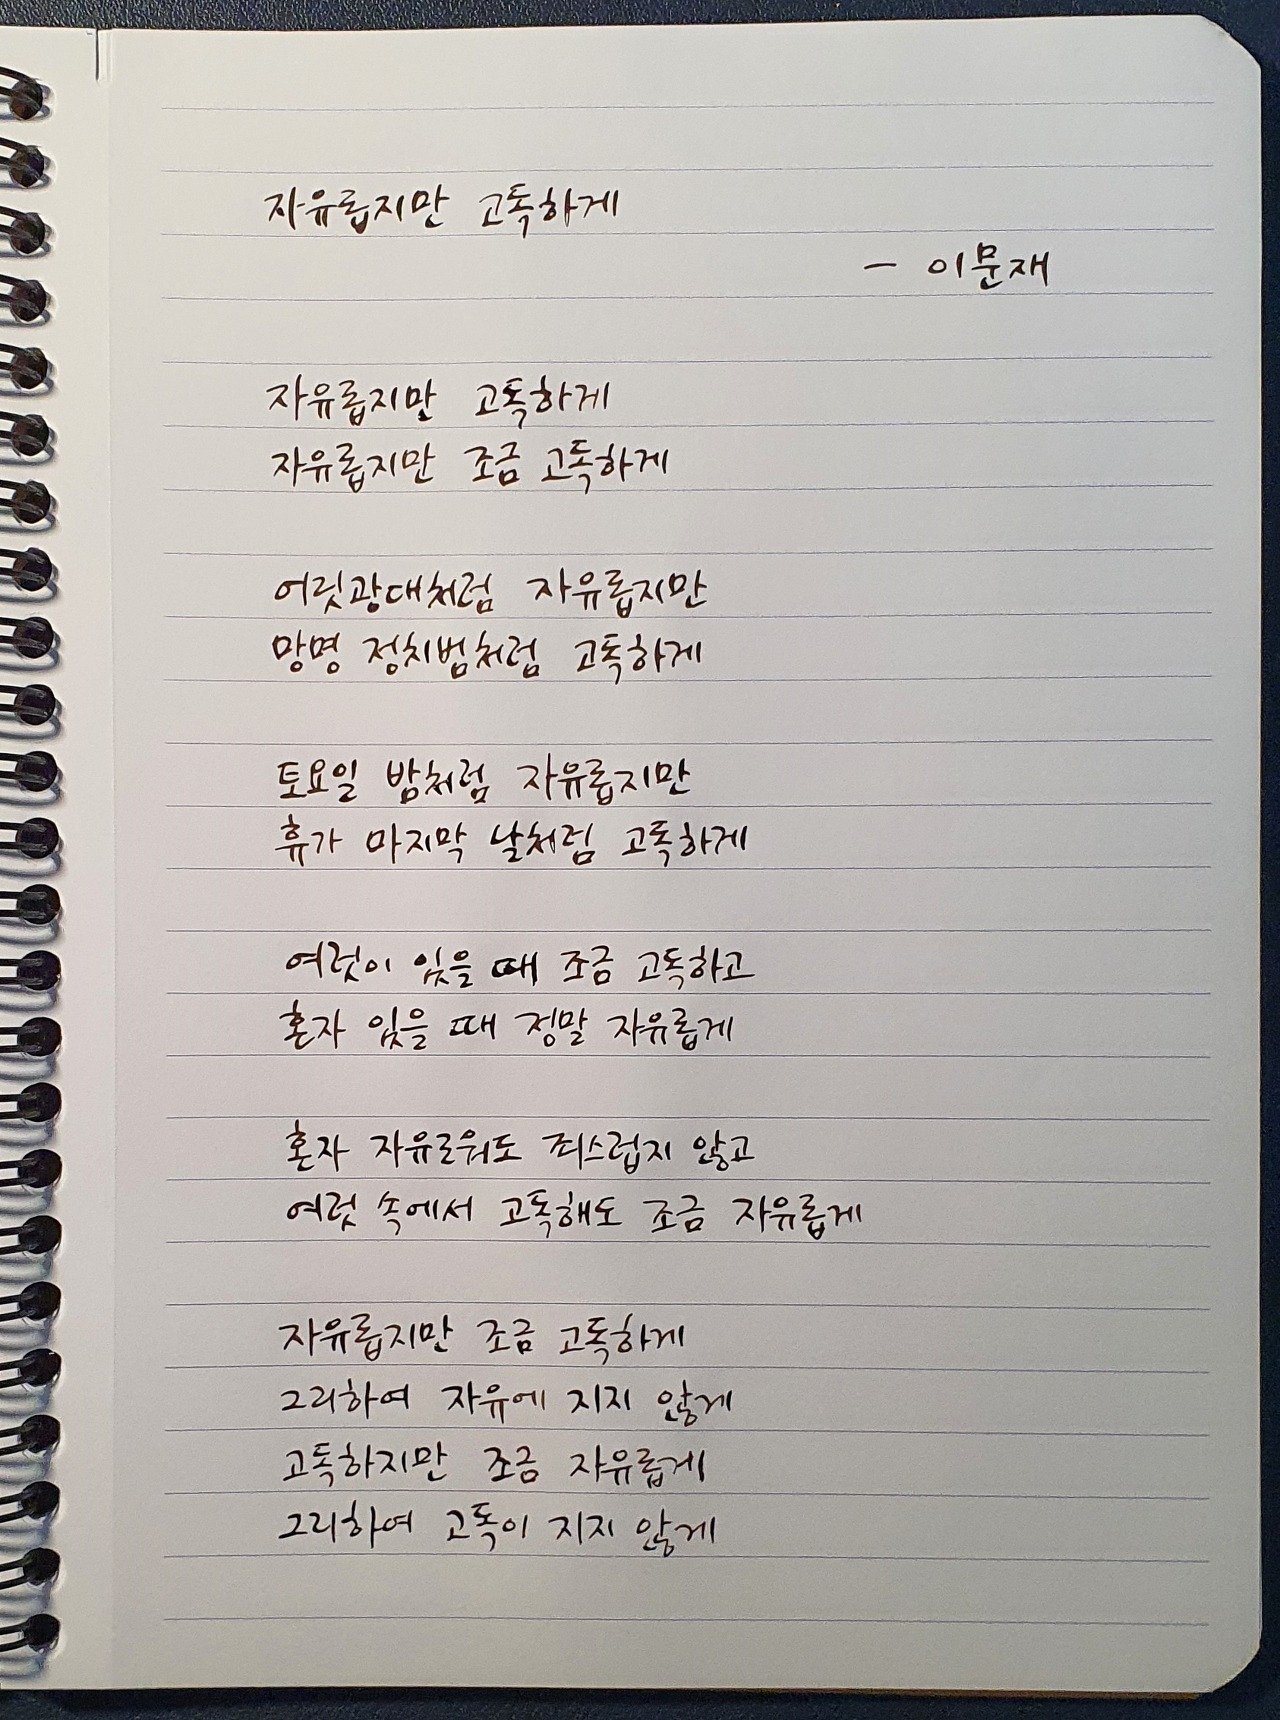 자유롭지만 고독하게
- 이문재
자유롭지만 고독하게
자유롭지만 조금 고독하게
어릿광대처럼 자유롭지만
망명 정치범처럼 고독하게
토요일 밤처럼 자유롭지만
휴가 마지막 날처럼 고독하게
여럿이 있을 때 조금 고독하고
혼자 있을 때 정말 자유롭게
혼자 자유로워도 죄스럽지 않고
여럿 속에서 고독해도 조금 자유롭게
자유롭지만 조금 고독하게
그리하여 자유에 지지 않게
고독하지만 조금 자유롭게
그리하여 고독이 지지 않게